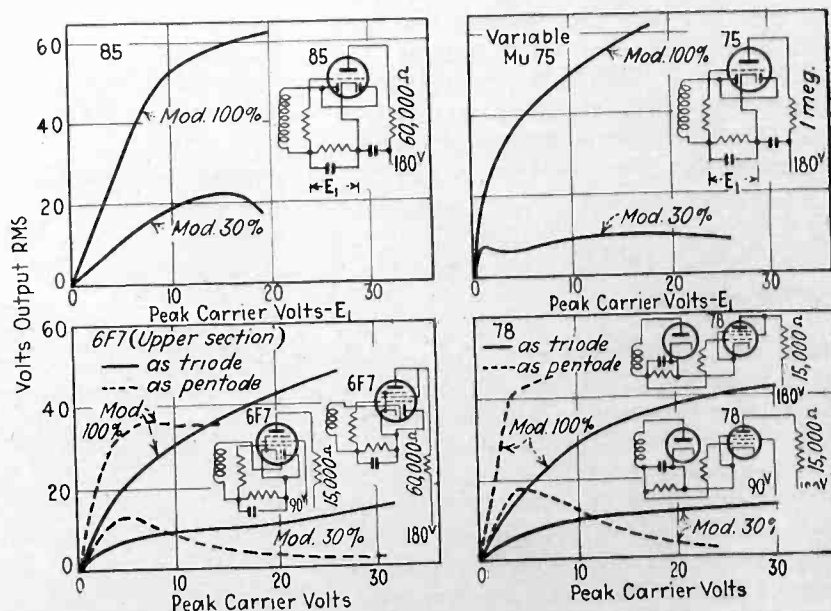 Volts Output RMS
60
40
20
0
85
Mod. 100%
Mod. 30%
85
60,000Ω
180V
E₁
0
10
20
30
Peak Carrier Volts-E₁
Variable
Mu 75
Mod. 100%
Mod. 30%
75
1 meg.
180V
E₁
0
10
20
30
Peak Carrier Volts-E₁
60
40
20
0
6F7 (Upper section)
as triode
as pentode
Mod.
100%
Mod. 30%
6F7
15,000Ω
90V
6F7
60,000Ω
180V
0
10
20
30
Peak Carrier Volts
78
as triode
as pentode
Mod. 100%
Mod. 30%
78
15,000Ω
180V
78
15,000Ω
90V
0
10
20
30
Peak Carrier Volts